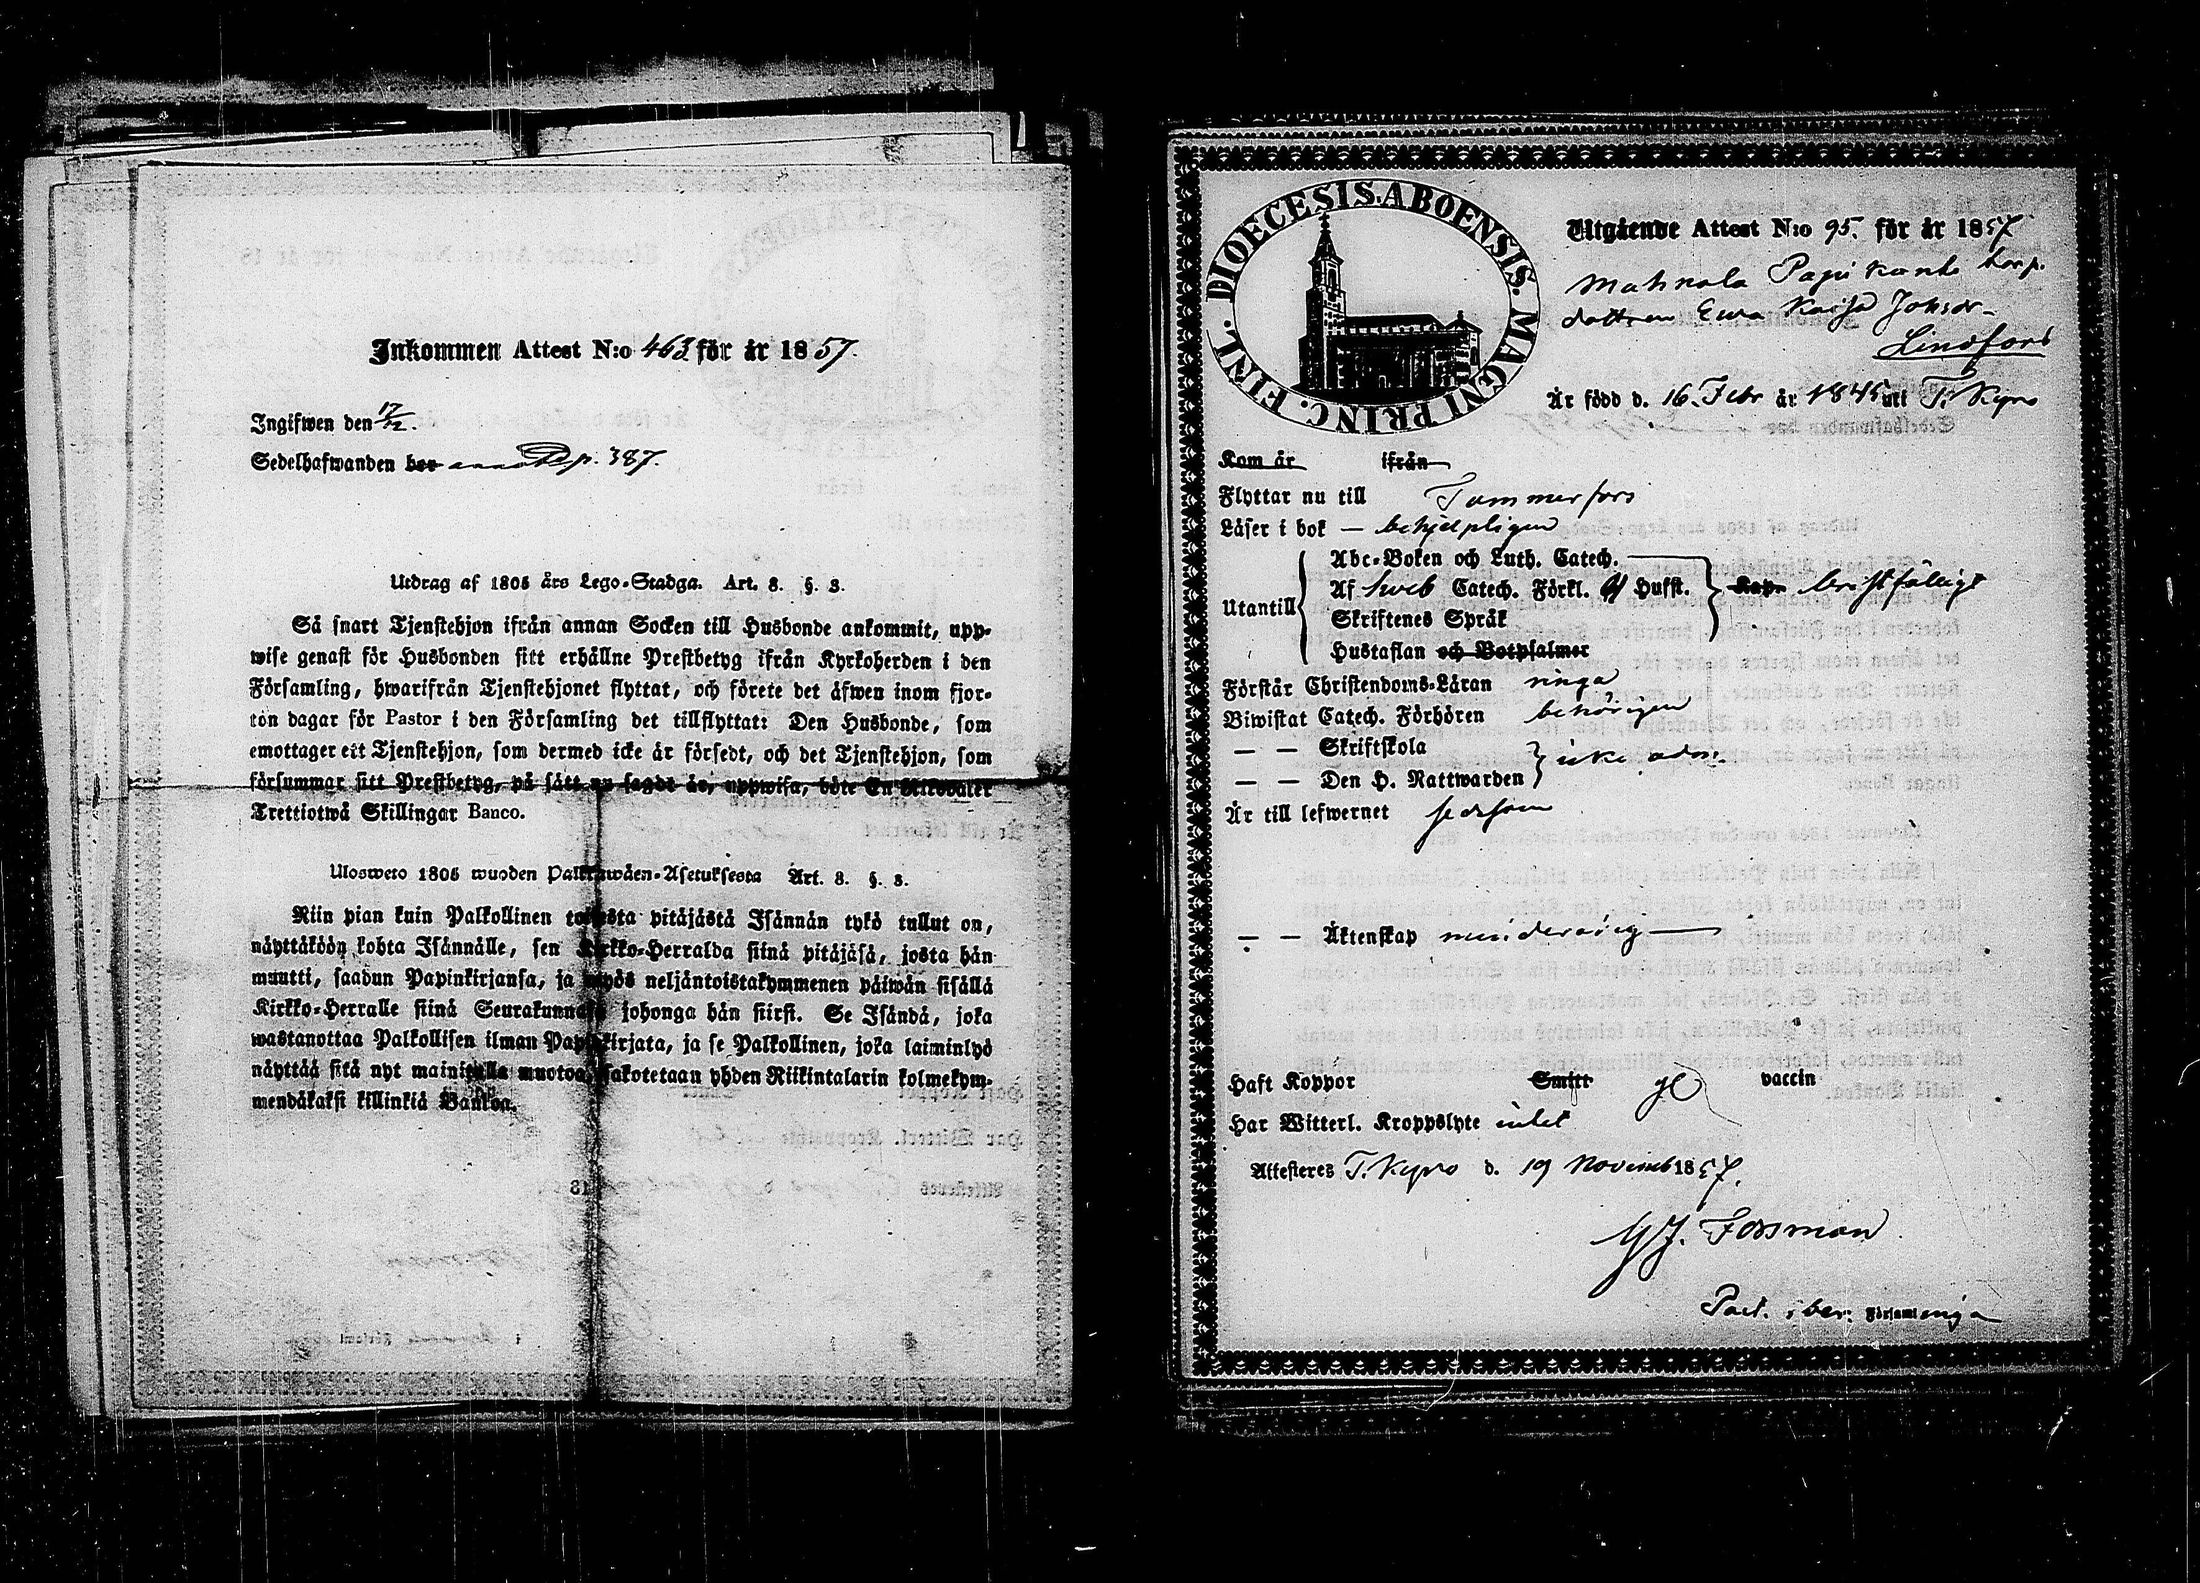 Inkommen Attest N:o 463 för år 1857.
Ingifwen den 17/12.
Sedelhafwanden bor p. 387.
Utdrag af 1805 års Lego-Stadga. Art. 8. §. 3.
Så snart Tjenstehjon ifrån annan Socken till Husbonde ankommit, upp-
wise genast för Husbonden sitt erhållne Prestbetyg ifrån Kyrkoherden i den
Församling, hwarifrån Tjenstehjonet flyttat, och förete det äfwen inom fjor-
ton dagar för Pastor i den Församling det tillflyttat: Den Husbonde, som
emottager ett Tjenstehjon, som dermed icke är försedt, och det Tjenstehjon, som
försummar sitt Prestbetyg, på sätt nu sagdt är, uppwisa, böte En Riksdaler
Trettiotwå Skillingar Banco.
Ulosweto 1805 wuoden Palkkawäen-Asetuksesta Art. 8. §. 3.
Niin pian kuin Palkollinen toisesta pitäjästä Isännän tykö tullut on,
näyttäköön kohta Isännälle, sen Kirkko-Herralda siinä pitäjäsä, josta hän
muutti, saadun Papinkirjansa, ja myös neljäntoistakymmenen päiwän sisällä
Kirkko-Herralle siinä Seurakunnasa johonga hän siirsi. Se Isändä, joka
wastanottaa Palkollisen ilman Papinkirjata, ja se Palkollinen, joka laiminlyö
näyttää sitä nyt mainitulla muotoa, sakotetaan yhden Riikintalarin kolmekym-
mendäkaksi killinkiä Bankoa.
DIOECESIS ABOENSIS. MAGNI PRINC. FINL.
Utgående Attest N:o 95. för år 1857
Mahnala Papi torp.
dottren Ewa Kaisa Johsdr
Lindfors
Är född d. 16. Febr år 1845 uti T. Kyro
Kom år ifrån
Flyttar nu till Tammerfors
Läser i bok — behjelpligen
Abc-Boken och Luth. Catech.
Utantill Af Sweb Catech. Förkl. Hufst. Kap. bristfälligt
Skriftenes Språk
Hustaflan och Botpsalmer
Förstår Christendoms-Läran ringa
Biwistat Catech. Förhören behörigen
— — Skriftskola
— — Den H. Nattwarden icke adm.
Är till lefwernet sedesam
— — Äktenskap minderårig —
Haft Koppor Smitt vaccin
Har Witterl. Kroppslyte intet
Attesteres T. Kyro d. 19 Novemb 1857.
G.J. Forsman
Past. i ber. Församlinga